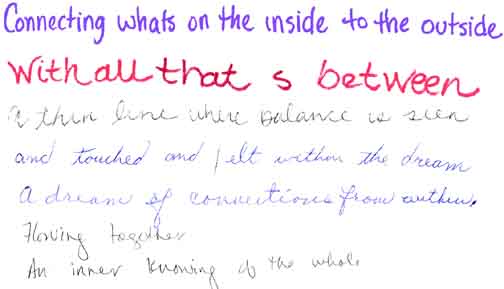 Connecting whats on the inside to the outside
With all that s between
a thin line where balance is seen
and touched and felt within the dream
a dream of connections from within.
Flowing together
An inner knowing of the whole